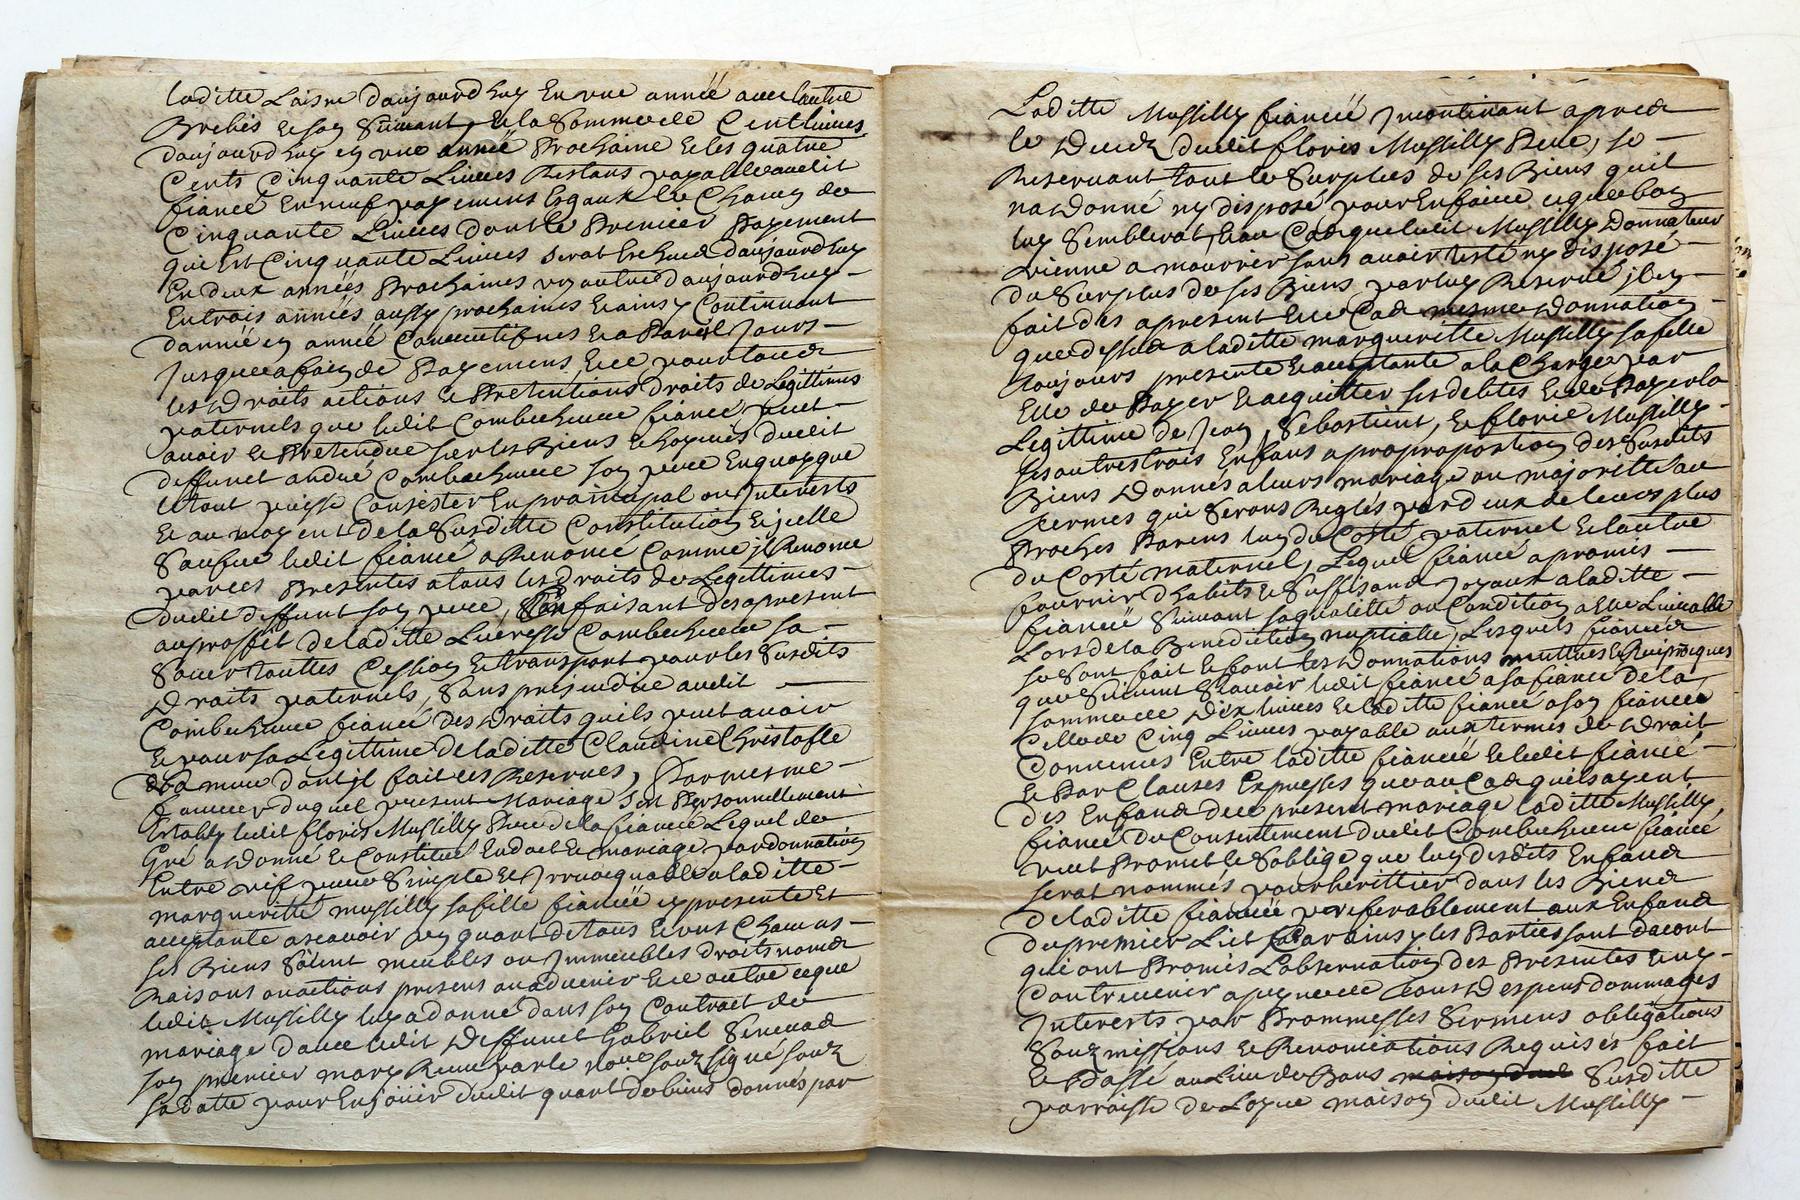 laditte Laisne daujourdhuy En une année avec lautre
Brebis et son suivant, Et la somme de Cent livres
daujourdhuy en une année Prochaine Et les quatre
Cents Cinquante Livres Restans payable audit
fiancé En neuf payemens Egaux de Chacun de
Cinquante Livres dont le Premier Payement
qui est Cinquante Livres serat Escheu daujourdhuy
En deux années Prochaines un autre daujourdhuy
En trois années aussy prochaines Et ainsy Continuant
dannée en année Consecutifves Et a Pareil Jours
Jusques a fin de Payemens, Et ce pour tous
les Droits actions Et Pretentions droits de Legittimes
paternels que ledit Combechieure fiancé peut
avoir Et Pretendre sur les Biens Et hoyries dudit
deffunct andré Combechieure son pere En quoy que
le tout puisse Consister En prainsipal ou Interests
Et au moyent de la susditte Constitution Et jcelle
sauf ledit fiancé a Renoncé Comme jl Renonce
par ces Presentes a tous les droits de Legittimes
dudit deffunt son pere, En faisant des apresent
au proffit de laditte Lucresse Combechieure sa
soeur touttes Cession Et transport pour les susdits
Droits paternels, sans prejeudice audit
Combechieure fiancé des Droits quils peut avoir
Et pour sa Legittime de laditte Claudine Christofle
sa mere dont jl fait les Reserves, Par mesme
faveur duquel present Mariage s'est Personnellement
Estably ledit floris Mussilly Pere de la fiancée Lequel de
Gré a Donné Et Constitué En dot Et mariage par donnation
Entre vif pure simple Et Irrevoquable a laditte
margueritte mussilly sa fille fiancée cy presente Et
acceptante ascavoir un quart de tous Et uns Chacuns
ses Biens soient meubles ou Immeubles droits noms
Raisons ou actions presens ou advenir Et ce outre ce que
ledit Mussilly luy a donné dans son Contract de
mariage d'avec ledit Deffunct Gabriel
son premier mary Receu par le nore souzsigné souz
sa datte pour En jouir dudit quart de biens donnés par
Laditte Mussilly fiancée Incontinant apres
le Deces dudit floris Mussilly Pere, se
Reservant tout le surplus de ses Biens quil
na Donné ny disposé pour En faire ce que bon
luy semblerat, Et au Cas que ledit Mussilly Donnateur
vienne a mourrir sans avoir testé ny disposé
du surplus de ses Biens par luy Reservé jl en
fait des apresent En ce Cas mesme donnation
que dessus a laditte margueritte Mussilly sa fille
toujours presente Et acceptante a la Charge par
Elle de Payer Et acquitter ses debtes Et de Payer la
Legittime de Jean, Sebastient, Et floris Mussilly
ses autres trois Enfans a propropostion des susdits
Biens Donnés a leurs mariage ou majoritté au
termes qui serons Reglés par deux de leurs plus
Proches Parens luy du Costé paternel Et lautre
du Costé maternel, Lequel fiancé a promis
fournir d'habits Et suffisans joyaux a laditte
fiancée suivant sa qualitté ou Condition a Elle Livrable
Lors de la Benediction nuptialle, Lesquels fiancés
se sont fait Et font les Donnations muttues Et Reiproques
que suivent scavoir ledit fiancé a sa fiancé de la
somme de Dix livres Et laditte fiancé a son fiancé
Celle de Cinq Livres payable aux termes de Droit
Convenus Entre laditte fiancée Et ledit fiancé
Et Par Clauses Expresses que au Cas quils ayent
des Enfans de ce present mariage laditte Mussilly
fiancé du Consentement dudit Combechieure fiancé
veut Promet Et soblige que luy desdits Enfans
serat nommés pour herittier dans les Biens
de laditte fiancée preferablement aux Enfans
du premier Lict Car ainsy les Parties sont dacort
qui ont Promis L'observation des Presentes Et ny
Contrevenir a peyne de tous Despens dommages
Interests par Prommesses sermens obligations
souzmissions Et Renonciations Requises fait
Et Passé au Lieu de Bans susditte
parroisse de Logue maison dudit Mussilly